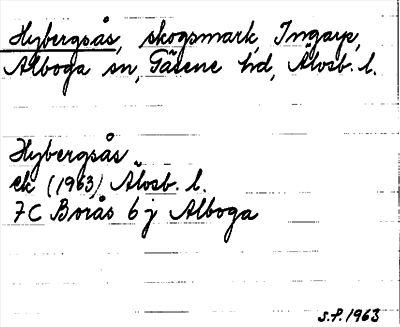 Hybergsås, skogsmark, Ingarp,
Alboga sn, Gäsene hd, Älvsb. l.
Hybergsås
ek (1963) Älvsb. l.
7C Borås 6 j Alboga
S.F. 1963